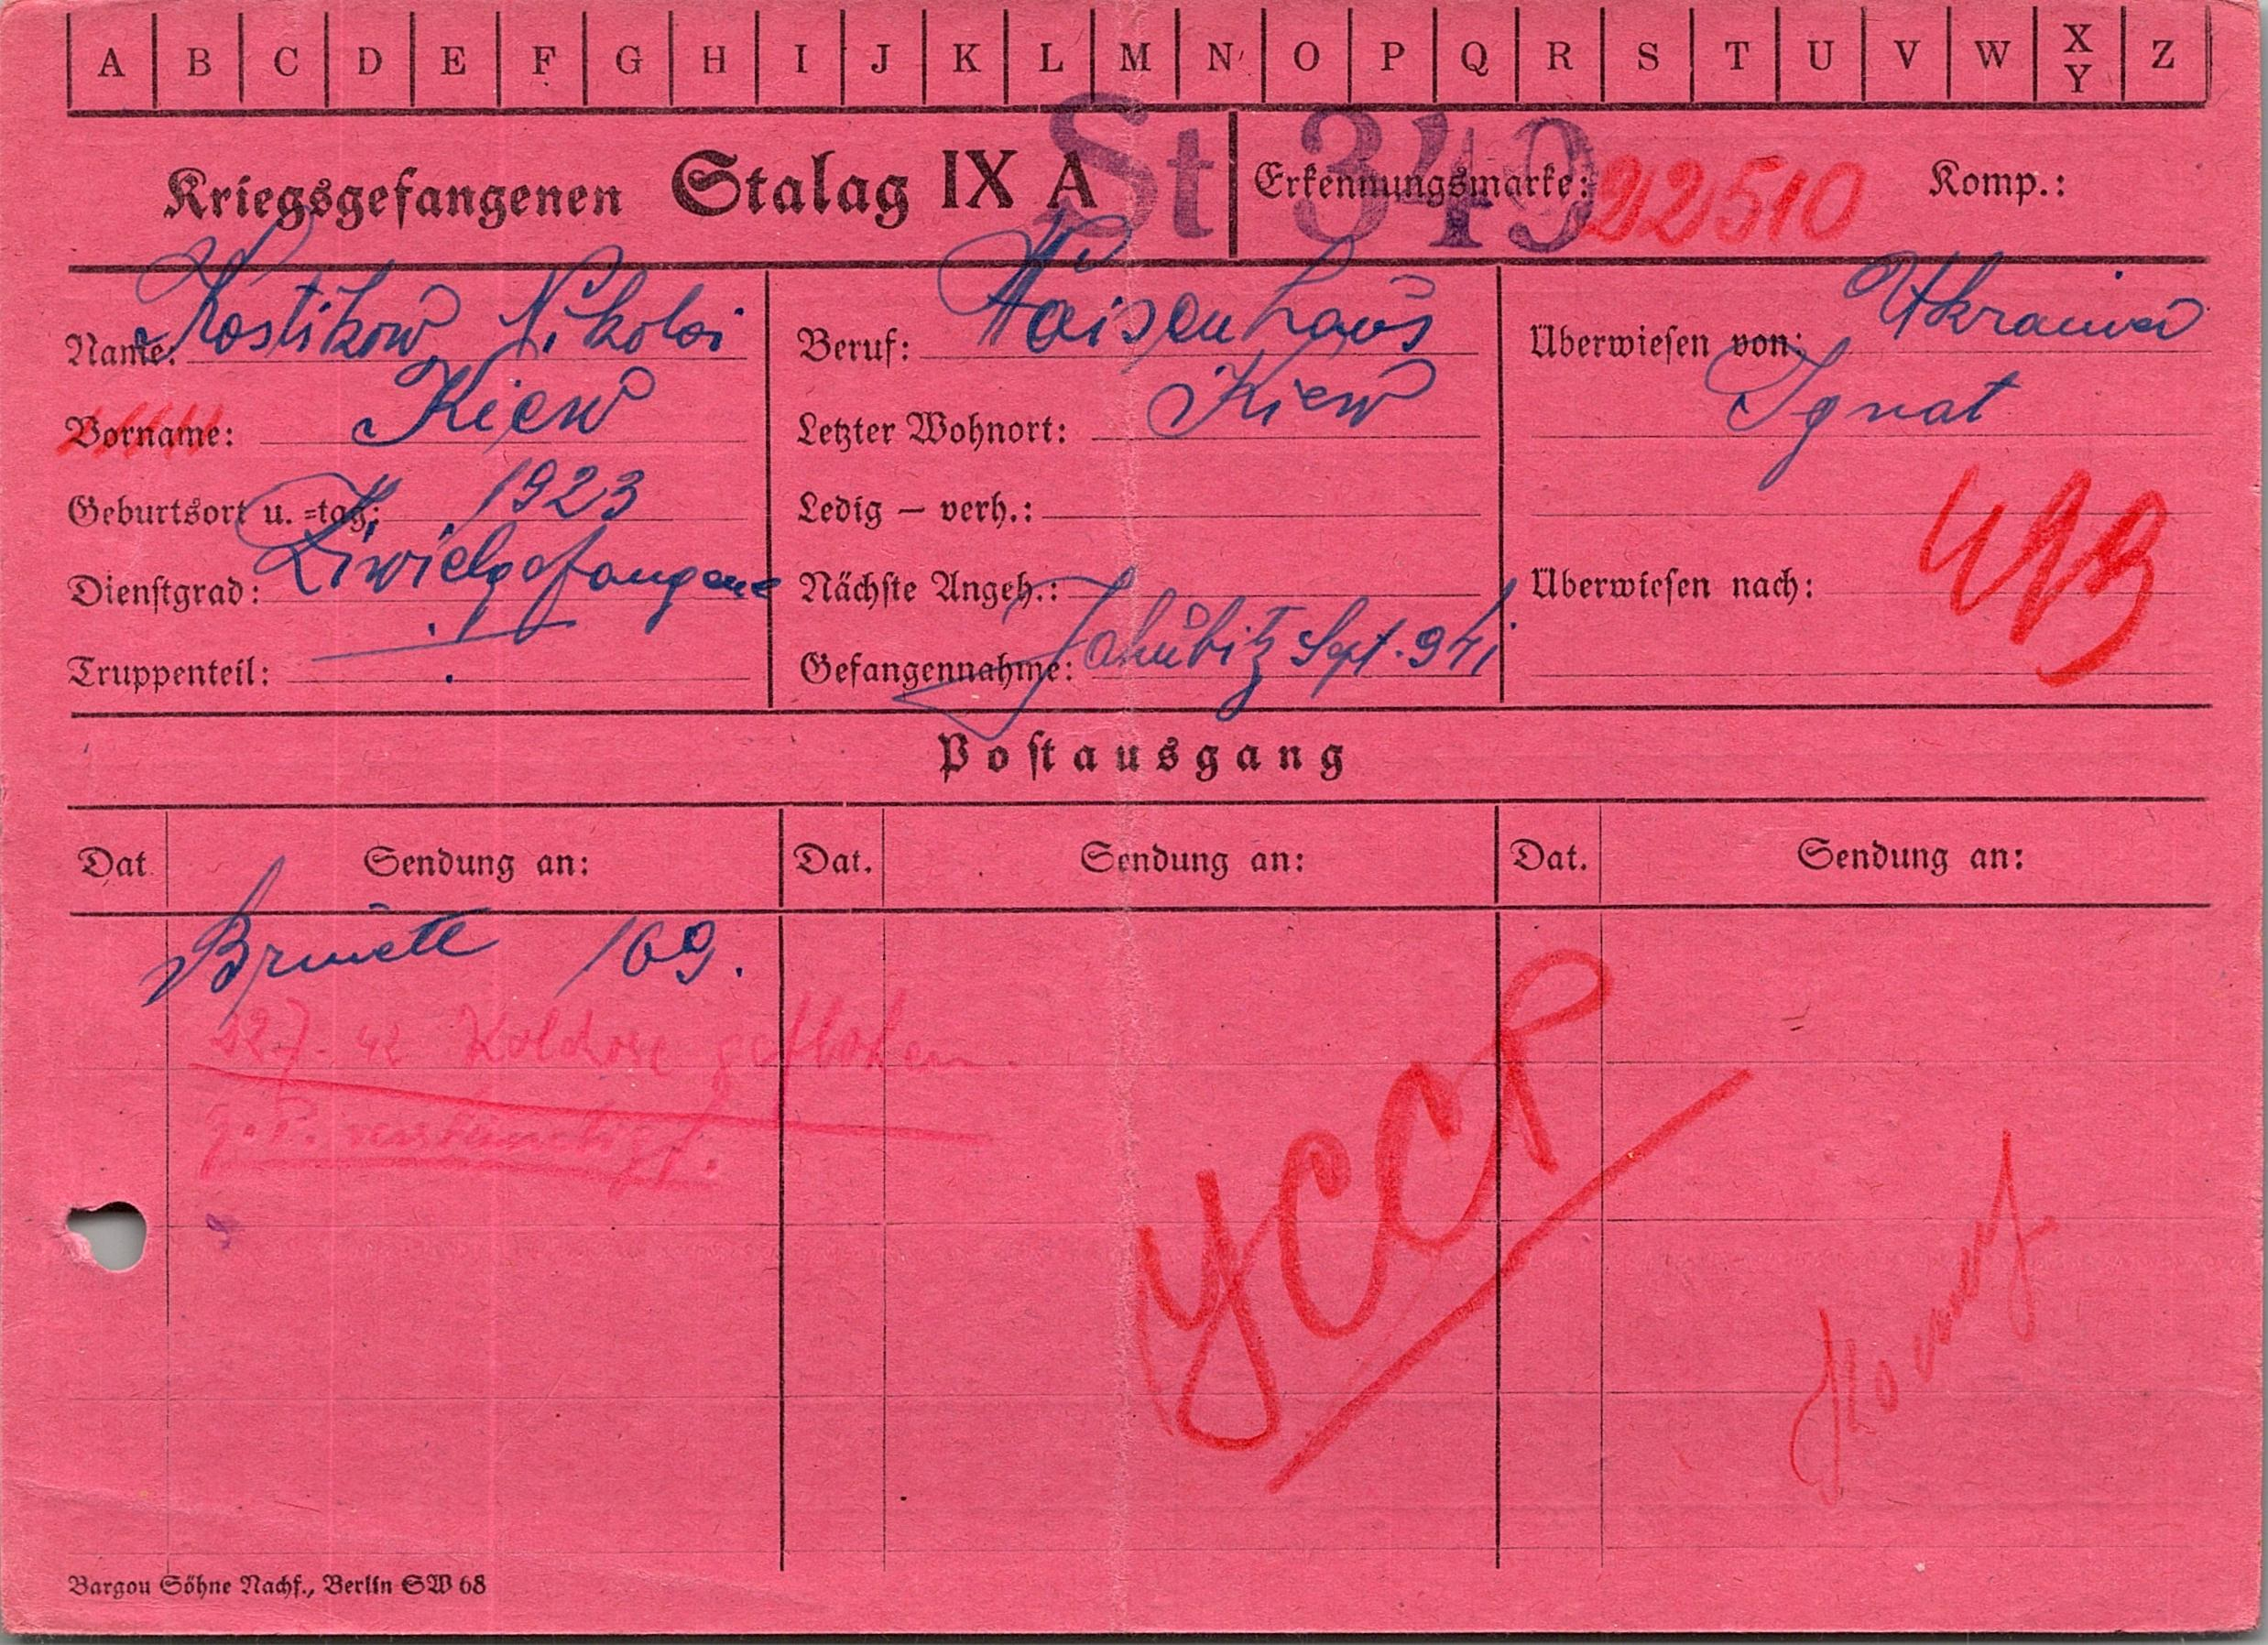 A B C D E F G H I J K L M N O P Q R S T U V W X Y Z
Kriegsgefangenen Stalag IX A
St 349
Erkennungsmarke: 22510 Komp.:
Name: Kostikow Nikolai
Beruf: Waisenhaus
Überwiesen von: Ukrainer
Vorname: Kiew
Letzter Wohnort: Kiew
Ignat
Geburtsort u. =tag: 1923
Ledig – verh.:
Dienstgrad: Ziwielgefangene
Nächste Angeh.:
Überwiesen nach:
Truppenteil:
Gefangennahme: Sept. 941
Postausgang
Dat Sendung an: Dat. Sendung an: Dat. Sendung an:
169.
42
g. P.
УССР
Bargou Söhne Nachf., Berlin SW 68